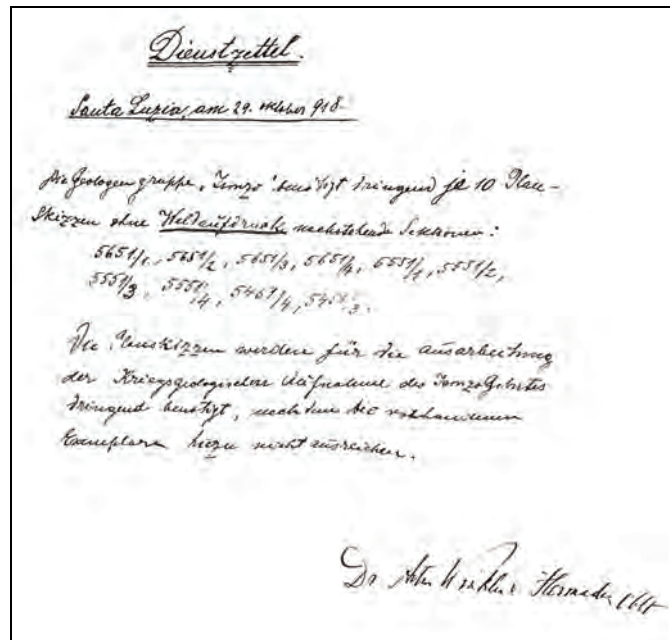 Dienstzettel.
Santa Luzia, am 29. Oktober 918
Die Geologengruppe „Isonzo" benötigt dringend je 10 Plan-
Skizzen ohne Waldaufdruck nachstehender Sektionen:
5651/1, 5651/2, 5651/3, 5651/4, 5551/1, 5551/2,
5551/3, 5551/4, 5451/4,
Die Planskizzen werden für die Ausarbeitung
der Kriegsgeologischen Aufnahme des Isonzo Gebietes
dringend benötigt, nachdem die vorhandenen
Exemplare hiezu nicht ausreichen.
Dr Artur Winkler Hermaden